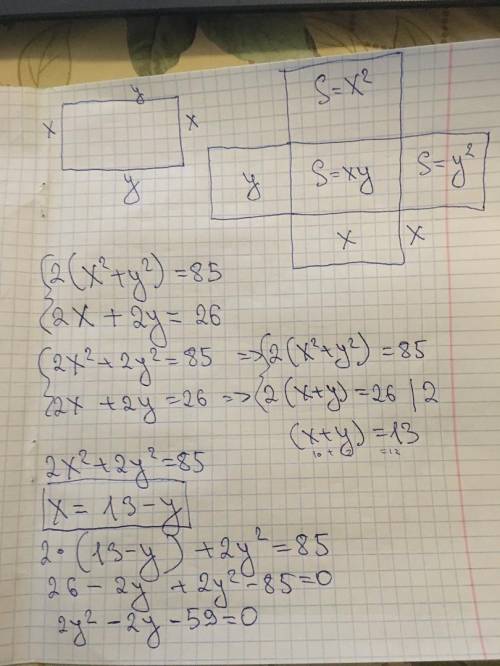 y
x x
y
S=x²
y S=xy S=y²
x x
{2(x²+y²)=85
{2x+2y=26
{2x²+2y²=85 => {2(x²+y²)=85
{2x+2y=26 => {2(x+y)=26 |2
(x+y)=13
2x²+2y²=85
x=13-y
2·(13-y)+2y²=85
26-2y+2y²-85=0
2y²-2y-59=0